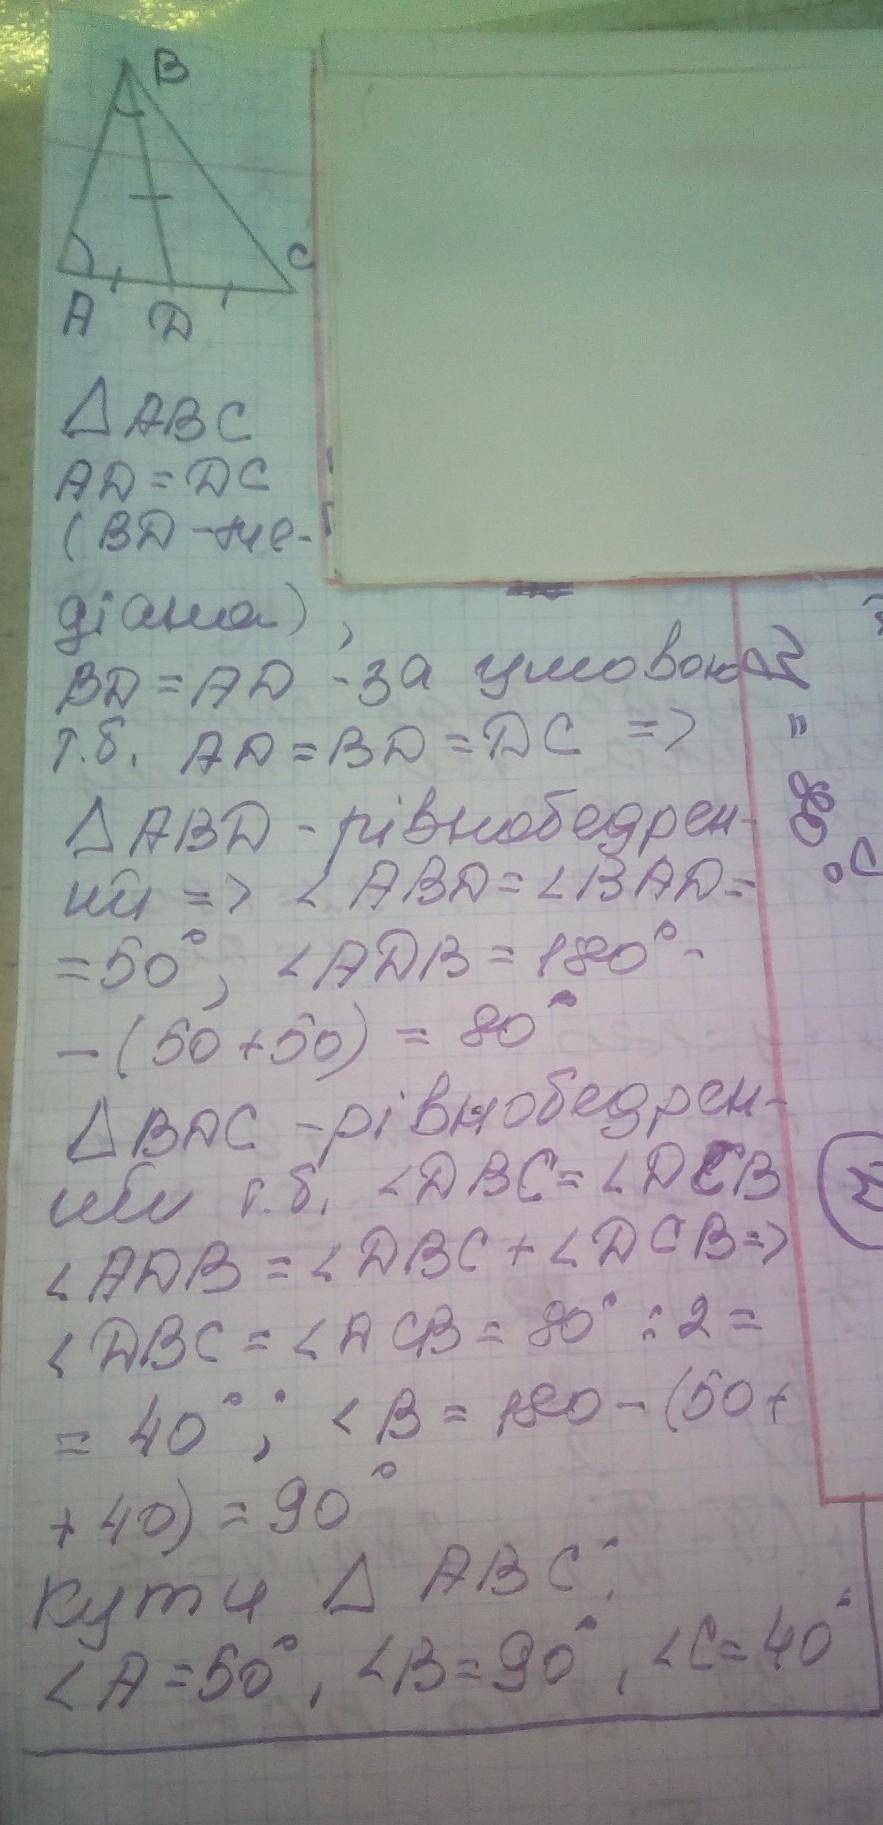 B
C
A D
△ABC
AD = DC
(BD - ме-
діана),
BD = AD - за умовою
т.б. AD = BD = DC =>
△ABD - рівнобедрен-
ий => ∠ABD = ∠BAD =
= 50°, ∠ADB = 180° -
- (50 + 50) = 80°
△BDC - рівнобедрен-
ий т.б. ∠DBC = ∠DCB
∠ADB = ∠DBC + ∠DCB =>
∠DBC = ∠ACB = 80° : 2 =
= 40°; ∠B = 180 - (50 +
+ 40) = 90°
Кути △ ABC:
∠A = 50°, ∠B = 90°, ∠C = 40°